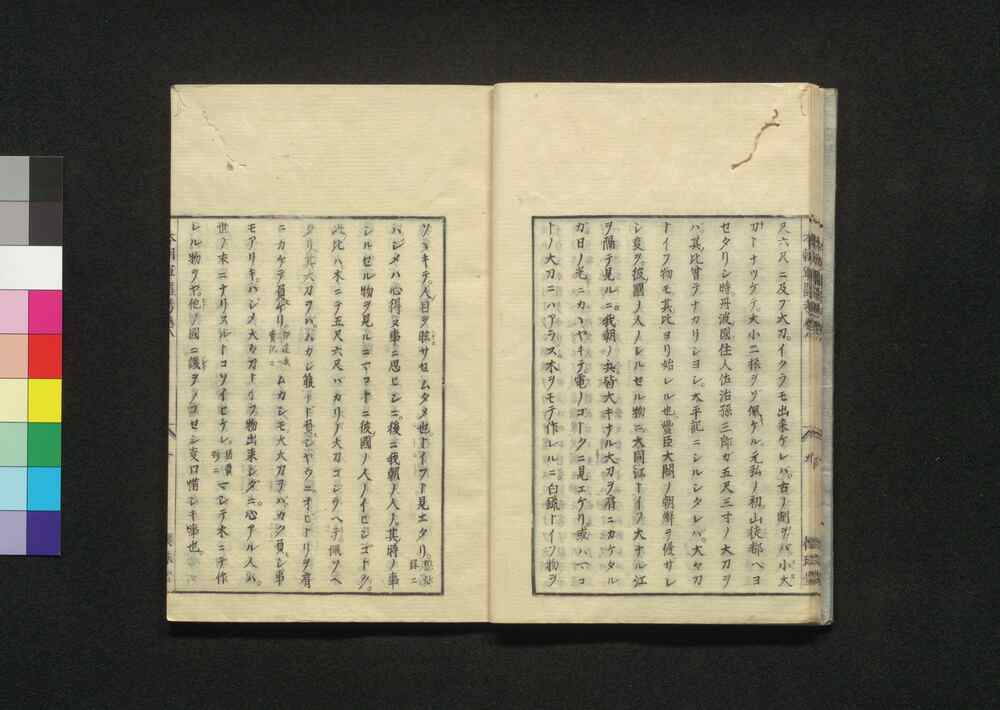 尺六尺ニ及フ太刀イクラモ出来ケレバ古ノ剣ヲバ小太
刀トナツケテ大小二振ヲゾ佩ケル元弘ノ初山徒都ヘヨ
セタリシ時丹波國住人佐治孫三郎ガ五尺三寸ノ大刀ヲ
ハ其比曽テナカリシヨシ太平記ニシルシタレバ大太刀
トイフ物モ其比ヨリ始レル也豊臣大閤ノ朝鮮ヲ侵サレ
シ変ヲ彼國ノ人ノシルセル物ニ大同江トイフ大ナル江
ヲ隔テ見ルニ我朝ノ兵皆大キナル大刀ヲ肩ニカケタル
ガ日ノ光ニカヽヤキテ電ノゴトクニ見エケリ或ハハコ
トノ大刀ニハアラス木ヲモテ作レルニ白鑞トイフ物ヲ
ソヽキテ人目ヲ眩サセムタメ也トイフト見エタリ
ハジメハ心得ヌ事ニ思ヒシニ後ニ我朝ノ人ノ其時ノ事
シルセル物ヲ見ルニマコトニ彼國ノ人ノイヒシゴトク
此比ハ木ニテ五尺六尺バカリノ大刀ゴシラヘテ佩ソヘ
ニカケテ負
ムカシモ大太刀ヲバカク負シ事
モアリキハジメ大太刀トイフ物出来シダニ心アル人ハ
世ノ末ニナリヌルトコソイヒケレ
マシテ木ニテ作
レル物ヲヤ他ノ國ニ譏ヲノコセシ変口惜シキ事也